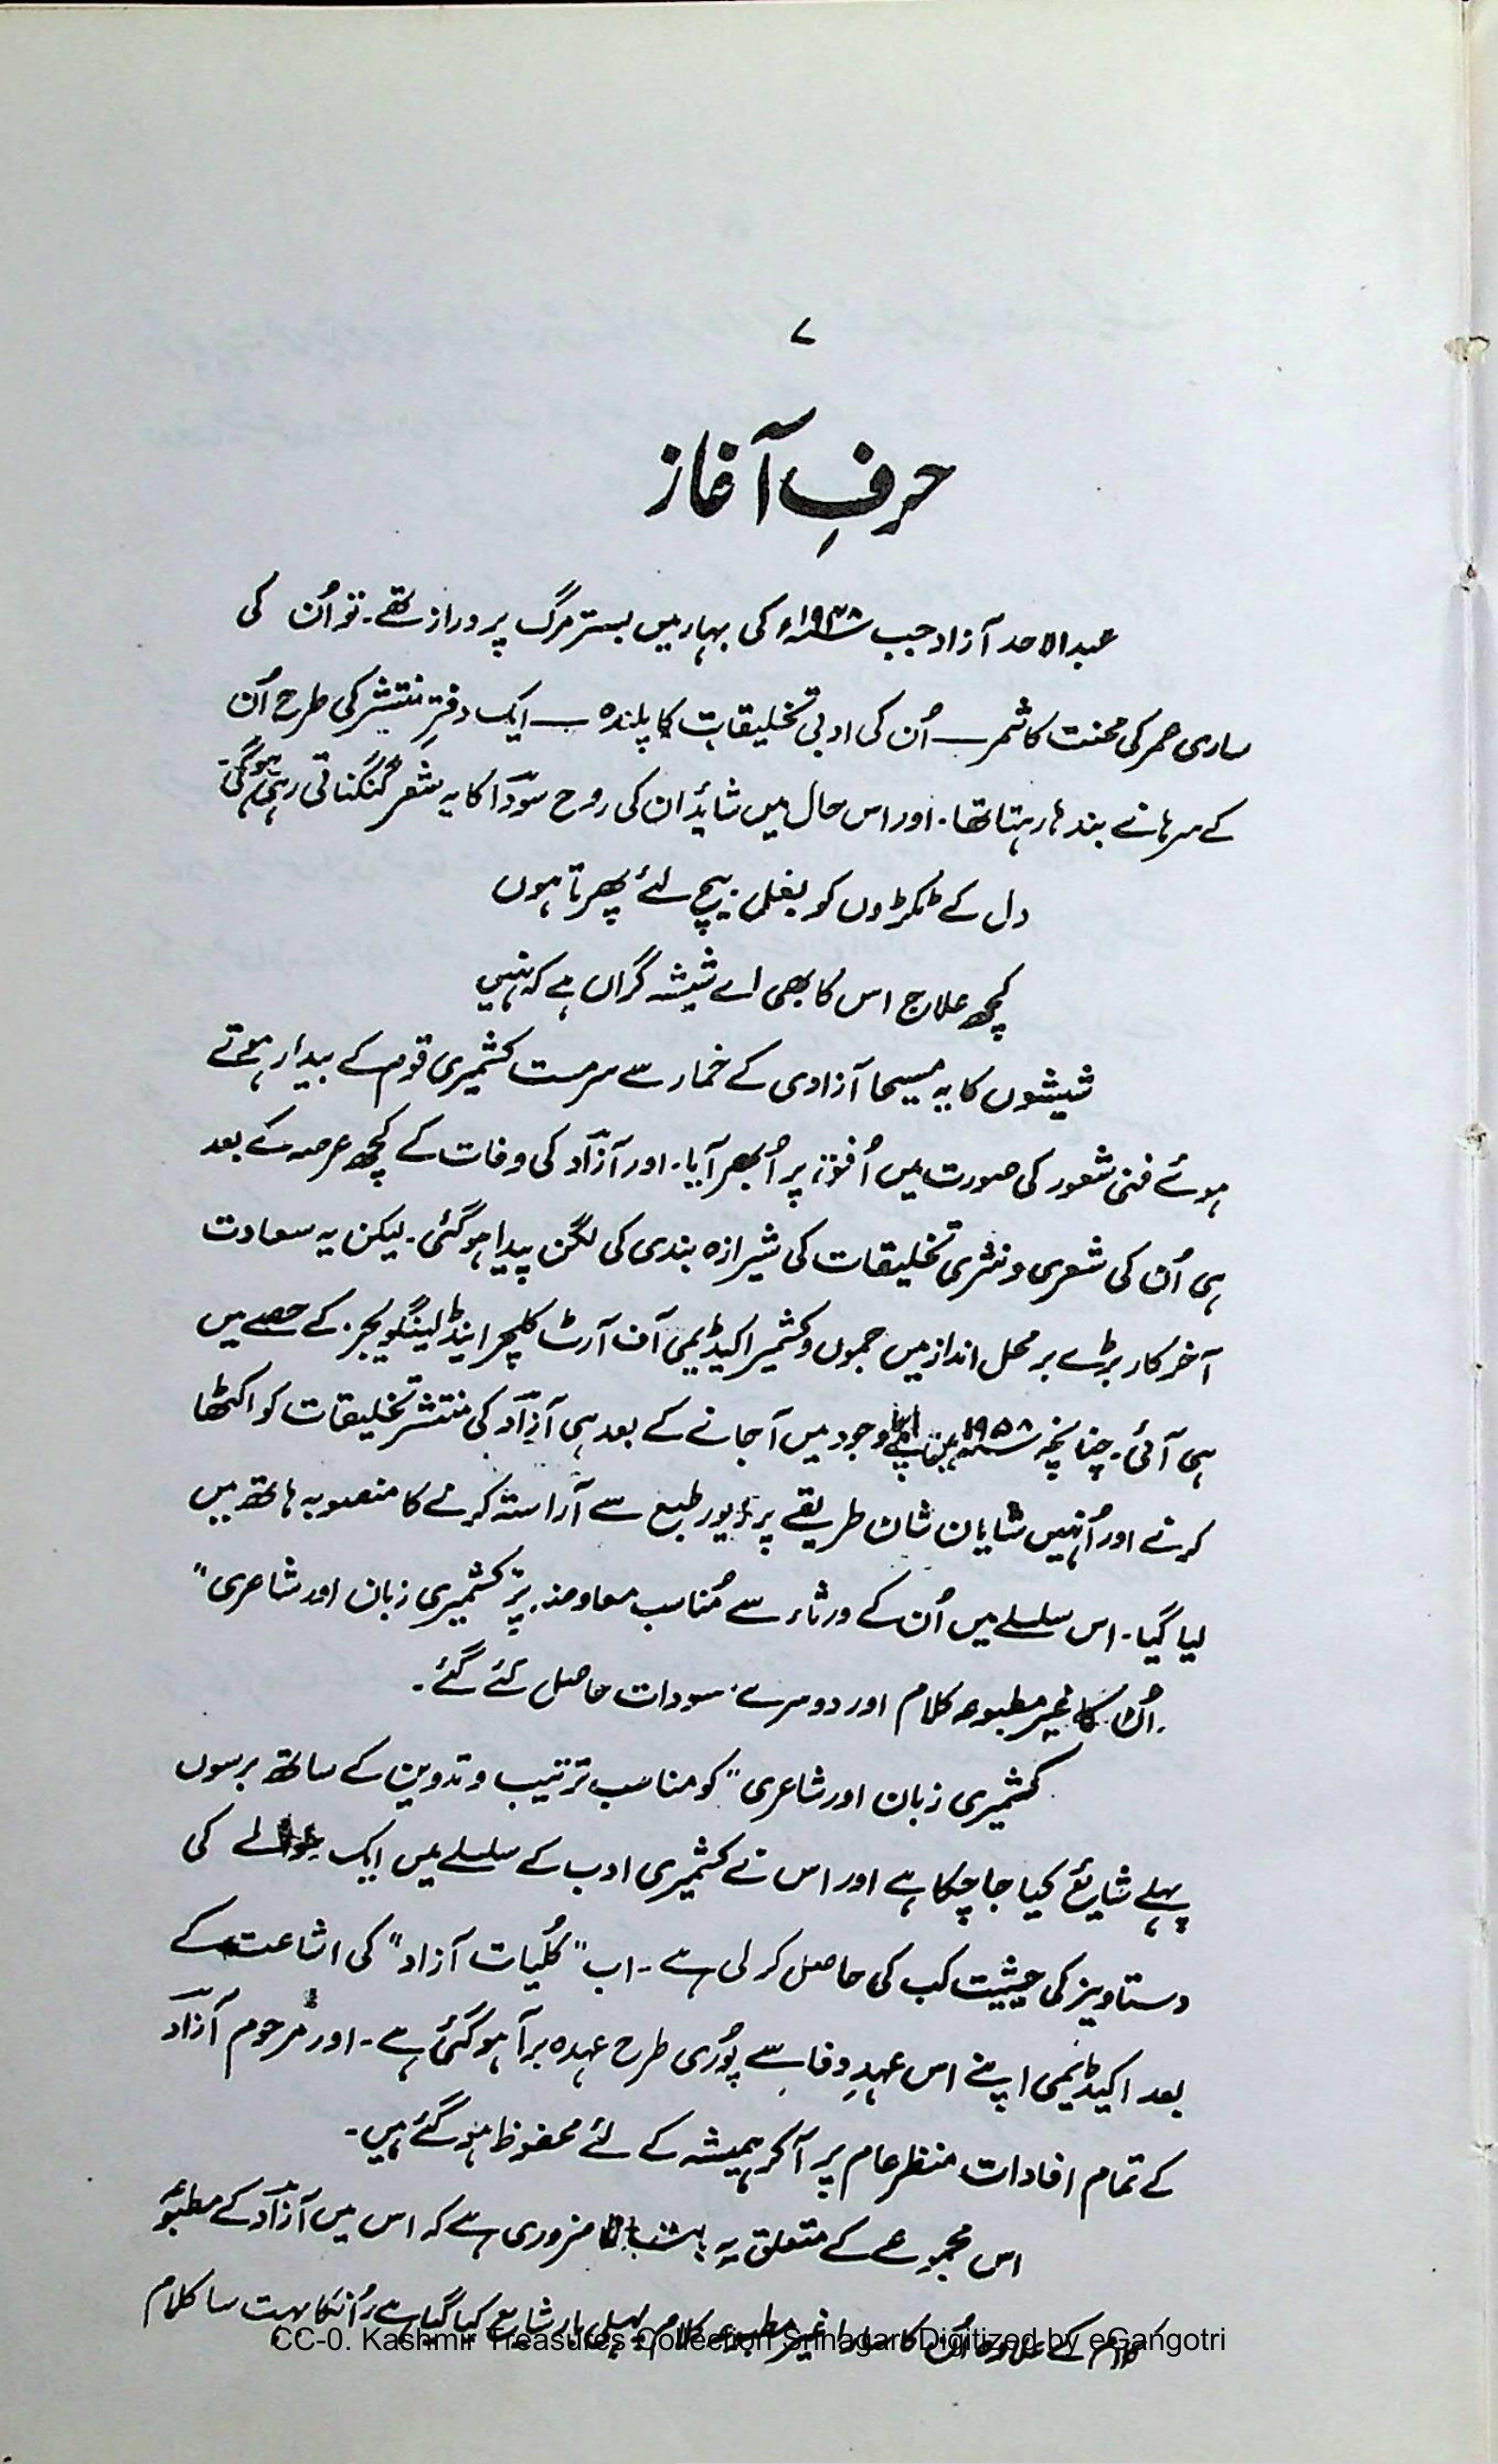 ۷
حرفِ آغاز
عبدالاحد آزاد جب ۱۹۴۸ء کی بہار میں بسترِ مرگ پر دراز تھے۔ تو اُن کی
ساری عمر کی محنت کا ثمر — اُن کی ادبی تخلیقات کا پلندہ — ایک دفترِ منتشر کی طرح اُن
کے سرہانے بندھا رہتا تھا۔ اور اس حال میں شائد ان کی روح سوؔدا کا یہ شعر گنگناتی رہی ہوگی۔
دل کے ٹکڑوں کو بغل بیچ لئے پھرتا ہوں
کچھ علاج اس کا بھی اے شیشہ گراں ہے کہ نہیں
شیشوں کا یہ مسیحا آزادی کے خمار سے سرمست کشمیری قوم کے بیدار ہوتے
ہوئے فنی شعور کی صورت میں اُفق پر اُبھر آیا۔ اور آزاؔد کی وفات کے کچھ عرصہ کے بعد
ہی اُن کی شعری و نثری تخلیقات کی شیرازہ بندی کی لگن پیدا ہوگئی۔ لیکن یہ سعادت
آخر کار بڑے بر محل انداز میں جموں و کشمیر اکیڈیمی آف آرٹ کلچر اینڈ لینگویجز۔ کے حصے میں
ہی آئی۔ چنانچہ ۱۹۵۸ء میں وجود میں آجانے کے بعد ہی آزاؔد کی منتشر تخلیقات کو اکٹھا
کرنے اور اُنہیں شایان شان طریقے پر زیور طبع سے آراستہ کرنے کا منصوبہ ہاتھ میں
لیا گیا۔ اس سلسلے میں اُن کے ورثاء سے مُناسب معاوضہ پر "کشمیری زبان اور شاعری"
اُن کا غیر مطبوعہ کلام اور دوسرے مسودات حاصل کئے گئے۔
کشمیری زبان اور شاعری" کو مناسب ترتیب و تدوین کے ساتھ برسوں
پہلے شایع کیا جا چکا ہے اور اس نے کشمیری ادب کے سلسلے میں ایک حوالے کی
دستاویز کی حیثیت کب کی حاصل کر لی ہے۔ اب "کُلیات آزاد" کی اشاعت کے
بعد اکیڈیمی اپنے اس عہدِ وفا سے پُوری طرح عہدہ برآ ہو گئی ہے۔ اور مرحوم آزاؔد
کے تمام افادات منظر عام پر آکر ہمیشہ کے لئے محفوظ ہو گئے ہیں۔
اس مجموعے کے متعلق یہ ضروری ہے کہ اس میں آزاؔد کے مطبوعہ
کلام کے علاوہ اُن کا سارا غیر مطبوعہ کلام پہلی بار شایع کیا گیا ہے۔ اُنکا بہت سا کلام
CC-0. Kashmir Treasures Collection Srinagar. Digitized by eGangotri